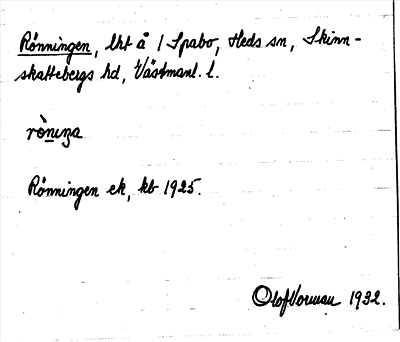 Rönningen, lht å 1 Spabo, Heds sn, Skinn-
skattebergs hd, Västmanl. l.
rö̀niŋa
Rönningen ek, kb 1925.
Olof Vorman 1932.